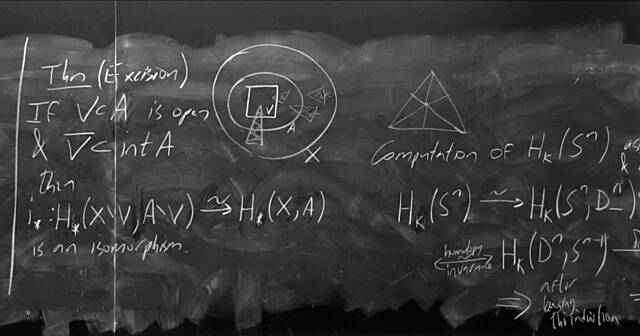 Thm (Excision)
If V⊂A is open
& V̅⊂intA.
then
i⁎: H⁎(X\V, A\V) →̃ H⁎(X,A)
is an isomorphism.
V
A
X
Computation of Hₖ(Sⁿ)
&
Hₖ(Sⁿ) →̃ Hₖ(Sⁿ, D₋ⁿ)
homotopy
invariance
Hₖ(Dⁿ, Sⁿ⁻¹)
⇒ after
the induction